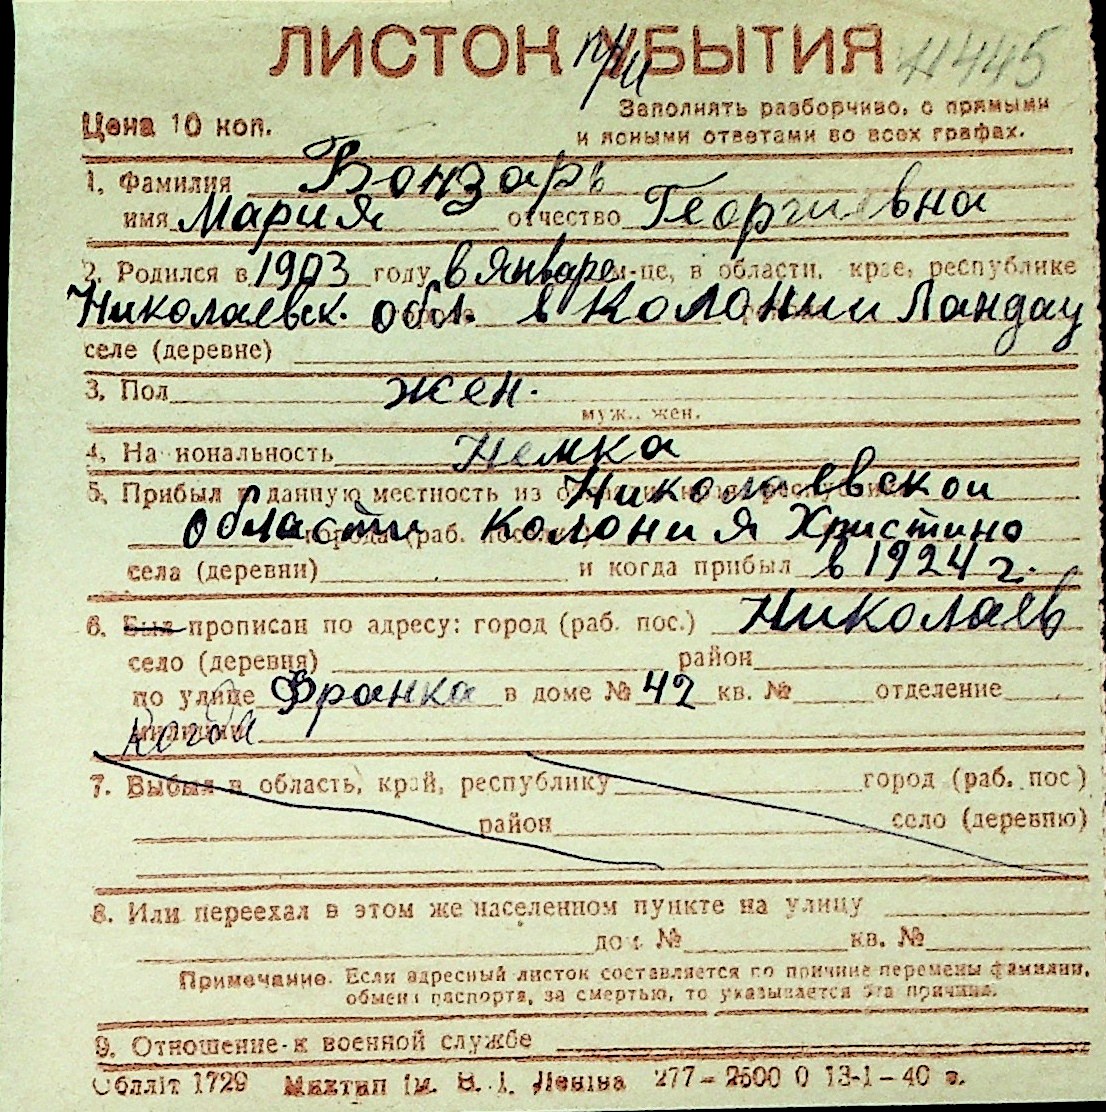 ЛИСТОК УБЫТИЯ
при
Цена 10 коп.
Заполнять разборчиво, с прямыми
и ясными ответами во всех графах.
1. Фамилия Бонзарь
имя Мария отчество Георгиевна
2. Родился в 1903 году в Январе м-це, в области, крае, республике
Николаевск. обл. в Колонии Ландау
селе (деревне)
3. Пол жен.
муж., жен.
4. Национальность Немка
5. Прибыл в данную местность из Николаевской
области колония Христино
села (деревни) и когда прибыл в 1924 г.
6. Был прописан по адресу: город (раб. пос.) Николаев
село (деревня) район
по улице Франка в доме № 42 кв. № отделение
милиции
7. Выбыл в область, край, республику город (раб. пос.)
район село (деревню)
8. Или переехал в этом же населенном пункте на улицу
дом № кв. №
Примечание. Если адресный листок составляется по причине перемены фамилии,
обмена паспорта, за смертью, то указывается эта причина.
9. Отношение к военной службе
Обллiт 1729 Мiктип iм. В. I. Ленiна 277–2500 0 13-1–40 г.